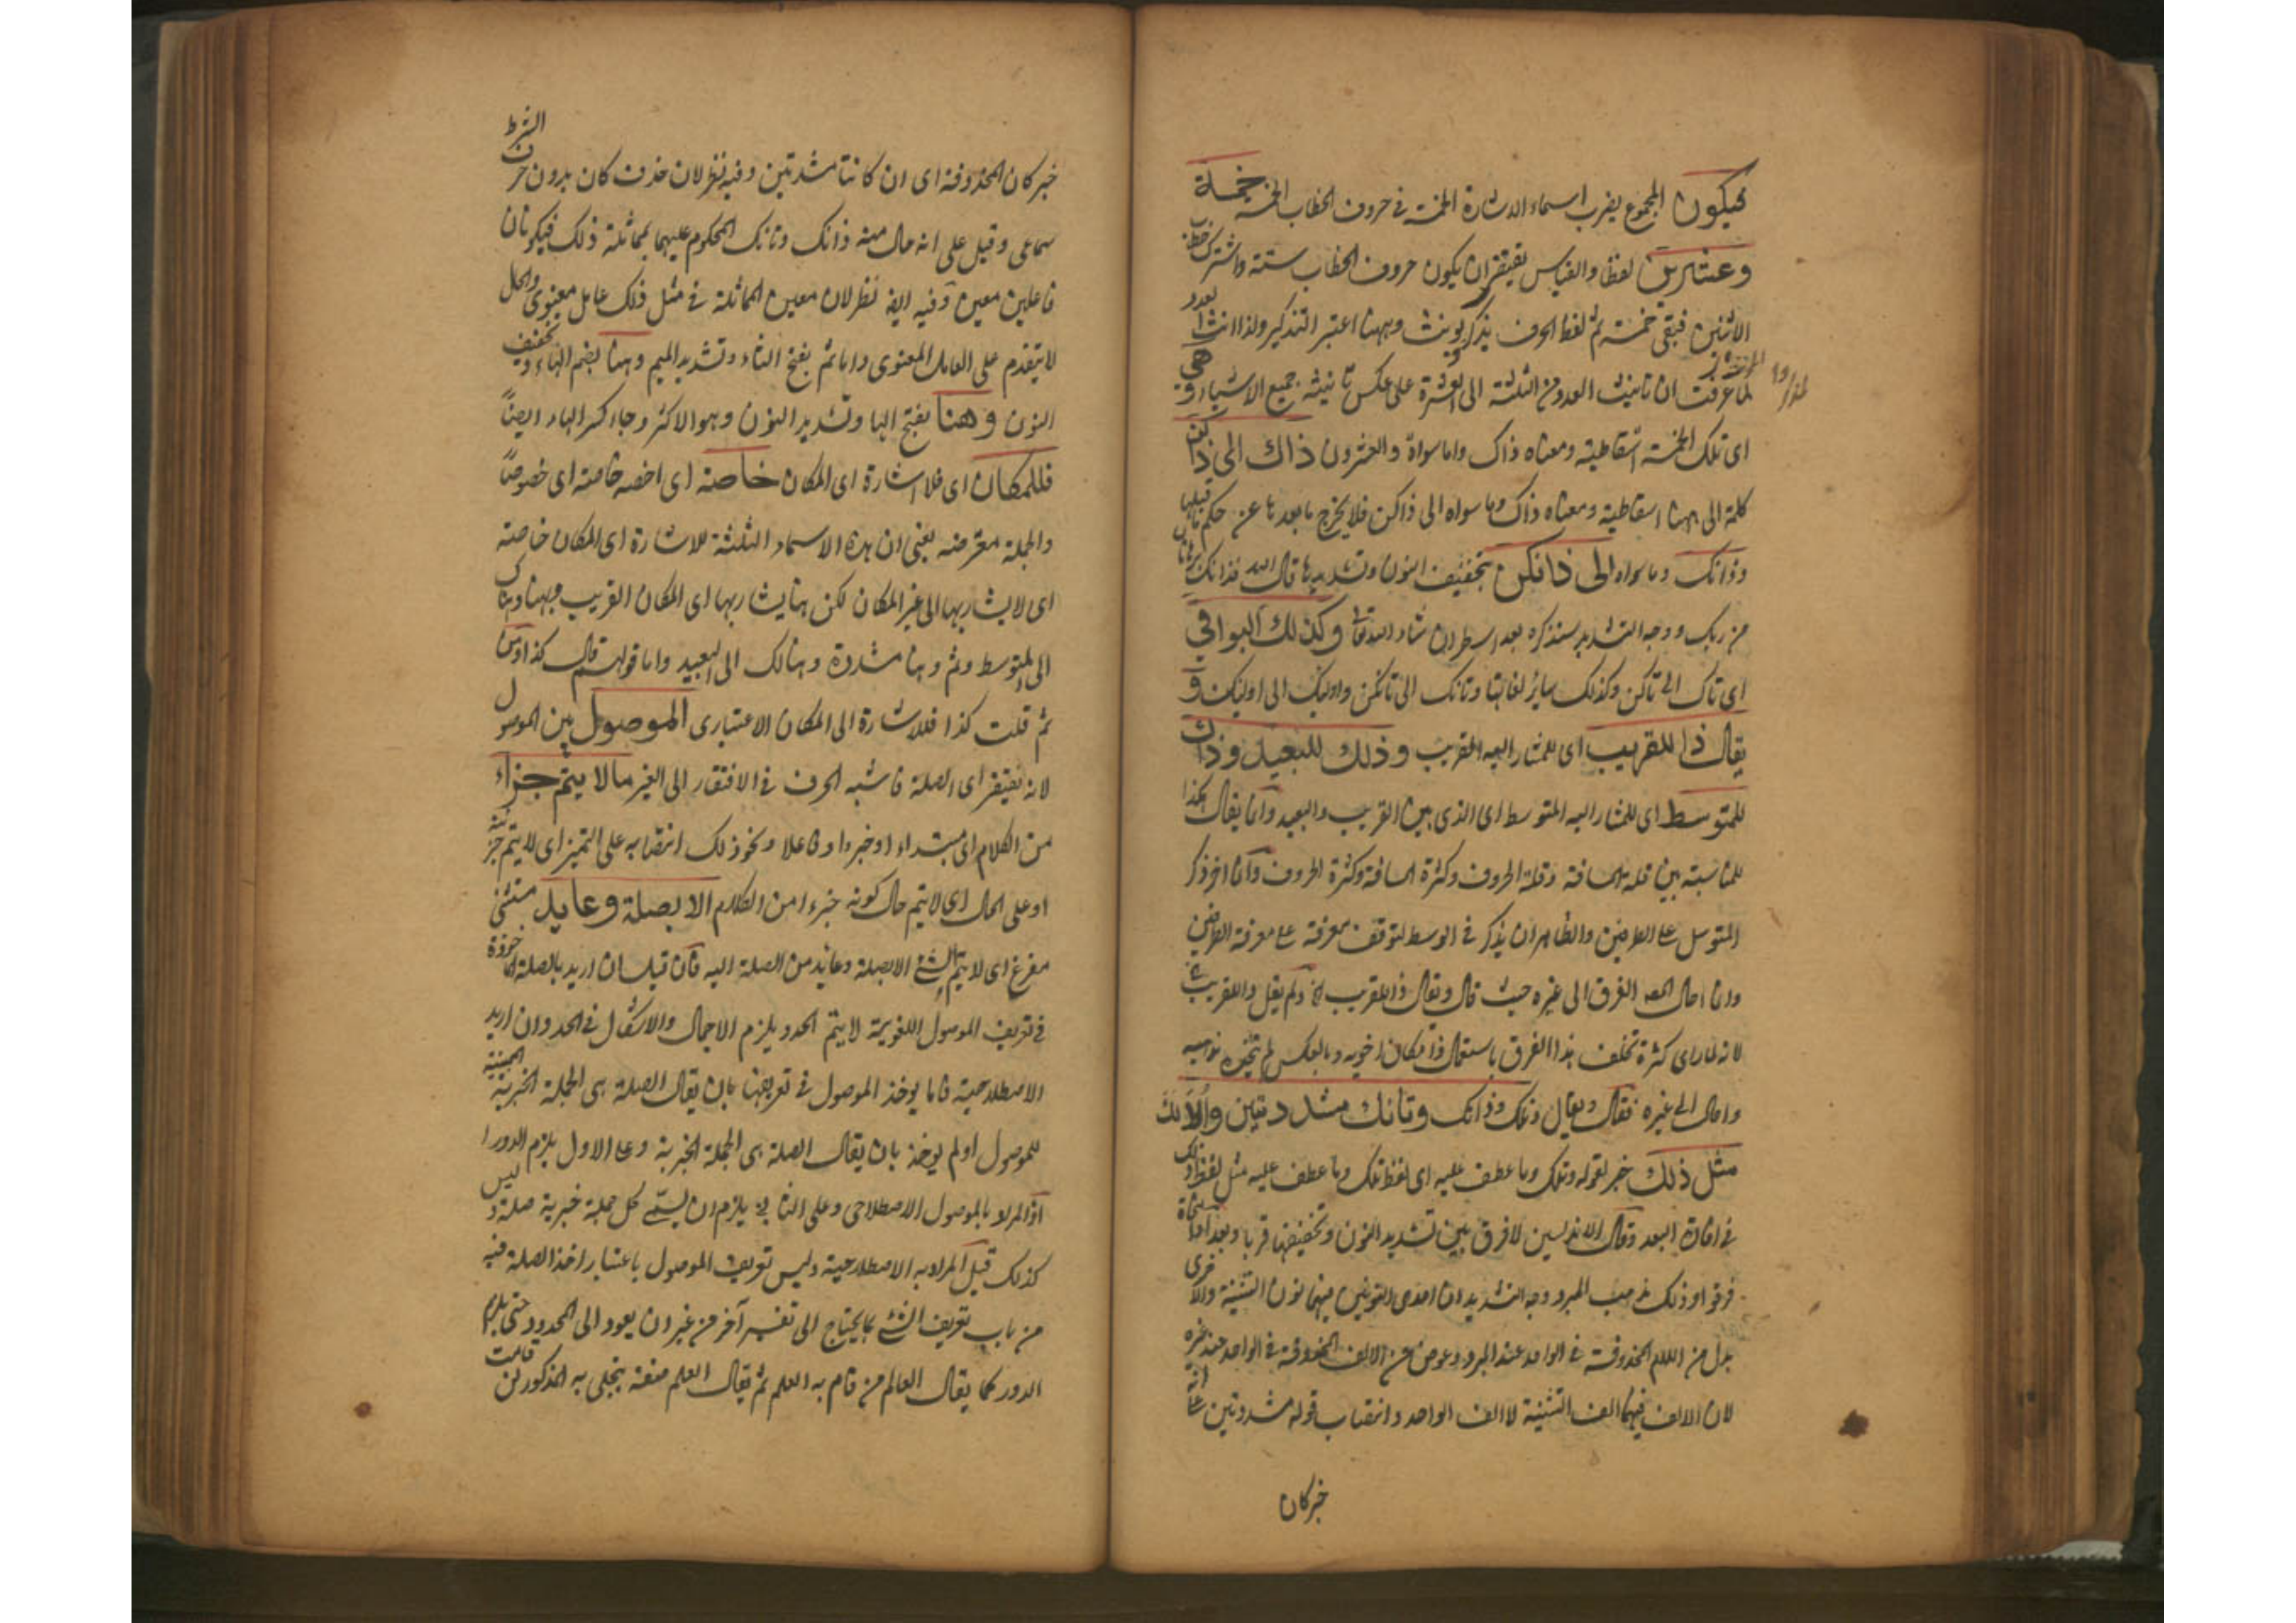 فيكون المجموع بضرب اسماء الاشارة الخمسة فى حروف الخطاب الخمسة خمسة
وعشرين لفظا والقياس يقتضى ان يكون حروف الخطاب ستة واشترك خطاب
الاثنين فبقى خمسة ثم لفظ الحرف يذكر ويؤنث وههنا اعتبر التذكير ولذا انث العدد
لما عرفت ان تانيث العدد من الثلثة الى العشرة على عكس تانيث جميع الاشياء وهى
اى تلك الخمسة اسقاطية ومعناه ذاك واما سواه والعشرون ذاك الى ذاكن
كلمة الى ههنا اسقاطية ومعناه ذاك وما سواه الى ذاكن فلا يخرج ما بعدها عن حكم ما قبلها
وذانك وما سواه الى ذانكن بتخفيف النون وتشديدها قال الله فذانك برهانان
من ربك ووجه التشديد سنذكره بعد اسطر ان شاء الله تعالى وكذلك البواقي
اى تاك الى تاكن وكذلك ساير لغاتها وتانك الى تانكن واوليك الى اوليكن و
يقال ذا للقريب اى للمشار اليه القريب وذلك للبعيد وذاك
للمتوسط اى للمشار اليه المتوسط اى الذى بين القريب والبعيد وانما يقال هكذا
للمناسبة بين قلة المسافة وقلة الحروف وكثرة المسافة وكثرة الحروف وانما اخر ذكر
المتوسط على الطرفين والظاهر ان يذكر فى الوسط لتوقف معرفته على معرفة الطرفين
وانما احال المص الفرق الى غيره حيث قال ويقال ذا للقريب الخ ولم يقل وللقريب
لانه لما راى كثرة تخلف هذا الفرق باستعمال ذا مكان اخويه وبالعكس لم يتخذه مذهبه
واحال الى غيره فقال ويقال وتلك وذانك وتانك مشددتين واولالك
مثل ذلك خبر لقوله وتلك وما عطف عليه اى لفظ تلك وما عطف عليه مثل لفظ ذلك
فى افادة البعد وقال الاندلسين لا فرق بين تشديد النون وتخفيفها قربا وبعدا
فرقوا وذلك مذهب المبرد وجه التشديد ان احدى النونين منهما نون التثنية والاخرى
بدل من اللام المحذوفة فى الواحد عند المبرد وعوض عن الالف المحذوفة فى الواحد عند غيره
لان الالف فيهما الف التثنية لا الف الواحد وانتصاب قوله مشددتين على انه
خبر كان
خبر كان المحذوفة اى ان كانتا مشددتين وفيه نظر لان حذف كان بدون حرف الشرط
سماعى وقيل على انه حال منه ذانك وتانك المحكوم عليهما بمماثلة ذلك فيكونان
فاعلين معين وفيه ايضا نظر لان معين المماثلة فى مثل ذلك عامل معنوى والحال
لا يتقدم على العامل المعنوى واما ثم بفتح الثاء وتشديد الميم وهنا بضم الهاء وتخفيف
النون وهنا بفتح الها وتشديد النون وهو الاكثر وجاء كسر الهاء ايضاً
فللمكان اى فلاشارة اى المكان خاصة اى اخصه خاصة اى خصوصاً
والجملة معترضه يعنى ان هذه الاسماء الثلثة للاشارة اى المكان خاصة
اى لا يشار بها الى غير المكان لكن هنا يشار بها اى المكان القريب وههنا وهناك
الى المتوسط وثم وهنا مشددة وهنالك الى البعيد واما قولهم قال كذا ومن
ثم قلت كذا فللاشارة الى المكان الاعتبارى الموصول بين الموصول
لانه يفتقر اى الصلة فاشبه الحرف فى الافتقار الى الغير مالا يتم جزاء
من الكلام اى مبتداء او خبرا او فاعلا ونحو ذلك انتصابه على التميز اى لا يتم جزئيته
او على الحال اى لا يتم حال كونه جزءا من الكلام الا بصلة وعايد مستثنى
مفرغ اى لا يتم الشئ الا بصلة وعايد من الصلة اليه فان قيل ان اريد بالصلة الماخوذة
فى تعريف الموصول اللغوية لا يتم الحد ويلزم الاجمال والاشكال فى الحد وان اريد
الاصطلاحية فاما يوخذ الموصول فى تعريفها بان يقال الصلة هى الجملة الخبرية المبينة
للموصول او لم يوخذ بان يقال الصلة هى الجملة الخبرية وعلى الاول يلزم الدور
اذ المراد بالموصول الاصطلاحى وعلى الثانى يلزم ان يسمى كل جملة خبرية صلة وليس
كذلك قيل المراد به الاصطلاحية وليس تعريف الموصول باعتبار اخذ الصلة فيه
من باب تعريف الشئ بما يحتاج الى تفسير آخر من غير ان يعود الى المحدود حتى يلزم
الدور كما يقال العالم من قام به العلم ثم يقال العلم صفة يتجلى به المذكور لمن قامت